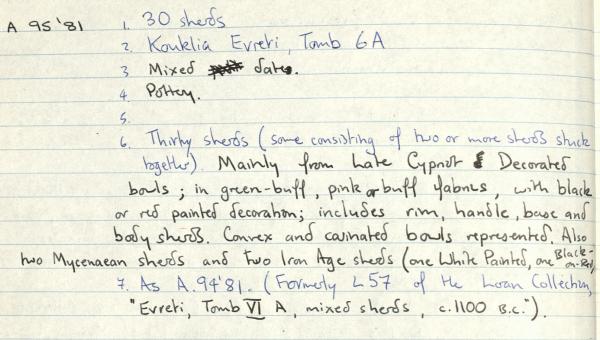 A 95'81 1. 30 sherds
2. Kouklia Evreti, Tomb 6A
3 Mixed date.
4 Pottery.
5.
6. Thirty sherds (some consisting of two or more sherds stuck
together). Mainly from Late Cypriot Decorated
bowls; in green-buff, pink or buff fabrics, with black
or red painted decoration; includes rim, handle, base and
body sherds. Convex and carinated bowls represented. Also
two Mycenaean sherds and two Iron Age sherds (one White Painted, one Black-
on-Red)
7. As A.94'81. (Formerly L57 of the Loan Collection,
"Evreti, Tomb VI A, mixed sherds, c.1100 B.C.").